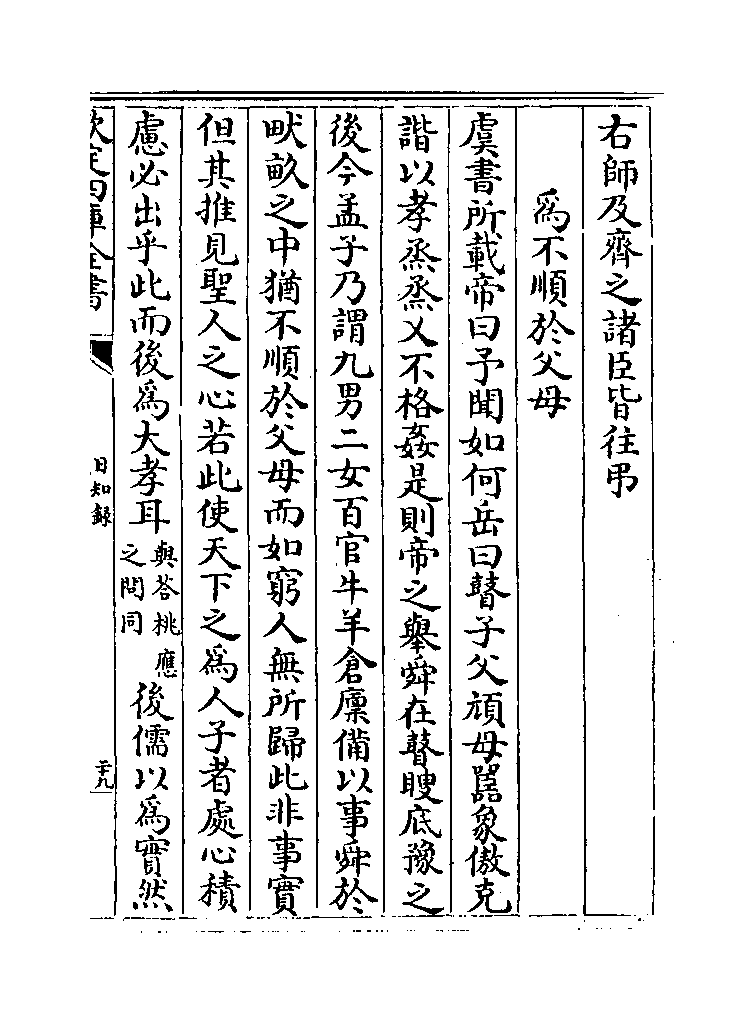 右師及齊之諸臣皆往弔
為不順於父母
虞書所載帝曰予聞如何岳曰瞽子父頑母嚚象傲克
諧以孝烝烝乂不格姦是則帝之舉舜在瞽瞍底豫之
後今孟子乃謂九男二女百官牛羊倉廩備以事舜於
畎畝之中猶不順於父母而如窮人無所歸此非事實
但其推見聖人之心若此使天下之為人子者處心積
慮必出乎此而後為大孝耳
與答桃應
之問同
後儒以為實然
欽定四庫全書
日知錄
二十九